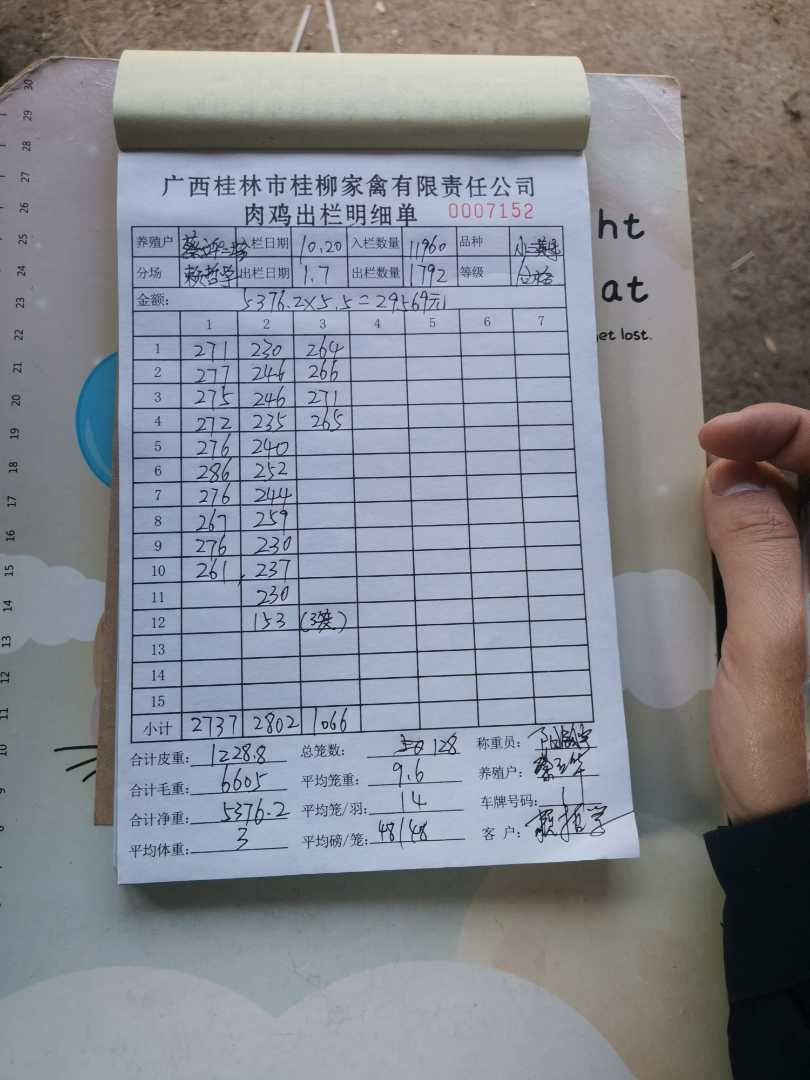 广西桂林市桂柳家禽有限责任公司
肉鸡出栏明细单 0007152
养殖户 入栏日期 10.20 入栏数量 11960 品种
分场 赖哲学 出栏日期 1.7 出栏数量 1792 等级 合格
金额: 5376.2×5.5=29569元
1 2 3 4 5 6 7
1 271 230 264
2 277 246 266
3 275 246 271
4 272 235 265
5 276 240
6 286 252
7 276 244
8 267 259
9 276 230
10 261 237
11 230
12 153 (3笼)
13
14
15
小计 2737 2802 1066
合计皮重: 1228.8 总笼数: 128 称重员:
合计毛重: 6605 平均笼重: 9.6 养殖户:
合计净重: 5376.2 平均笼/羽: 14 车牌号码: 1
平均体重: 3 平均磅/笼: 48/48 客户: 赖哲学
ht
at
get lost.
30
29
28
27
26
25
24
23
22
21
20
19
18
17
16
15
14
13
12
11
10
9
8